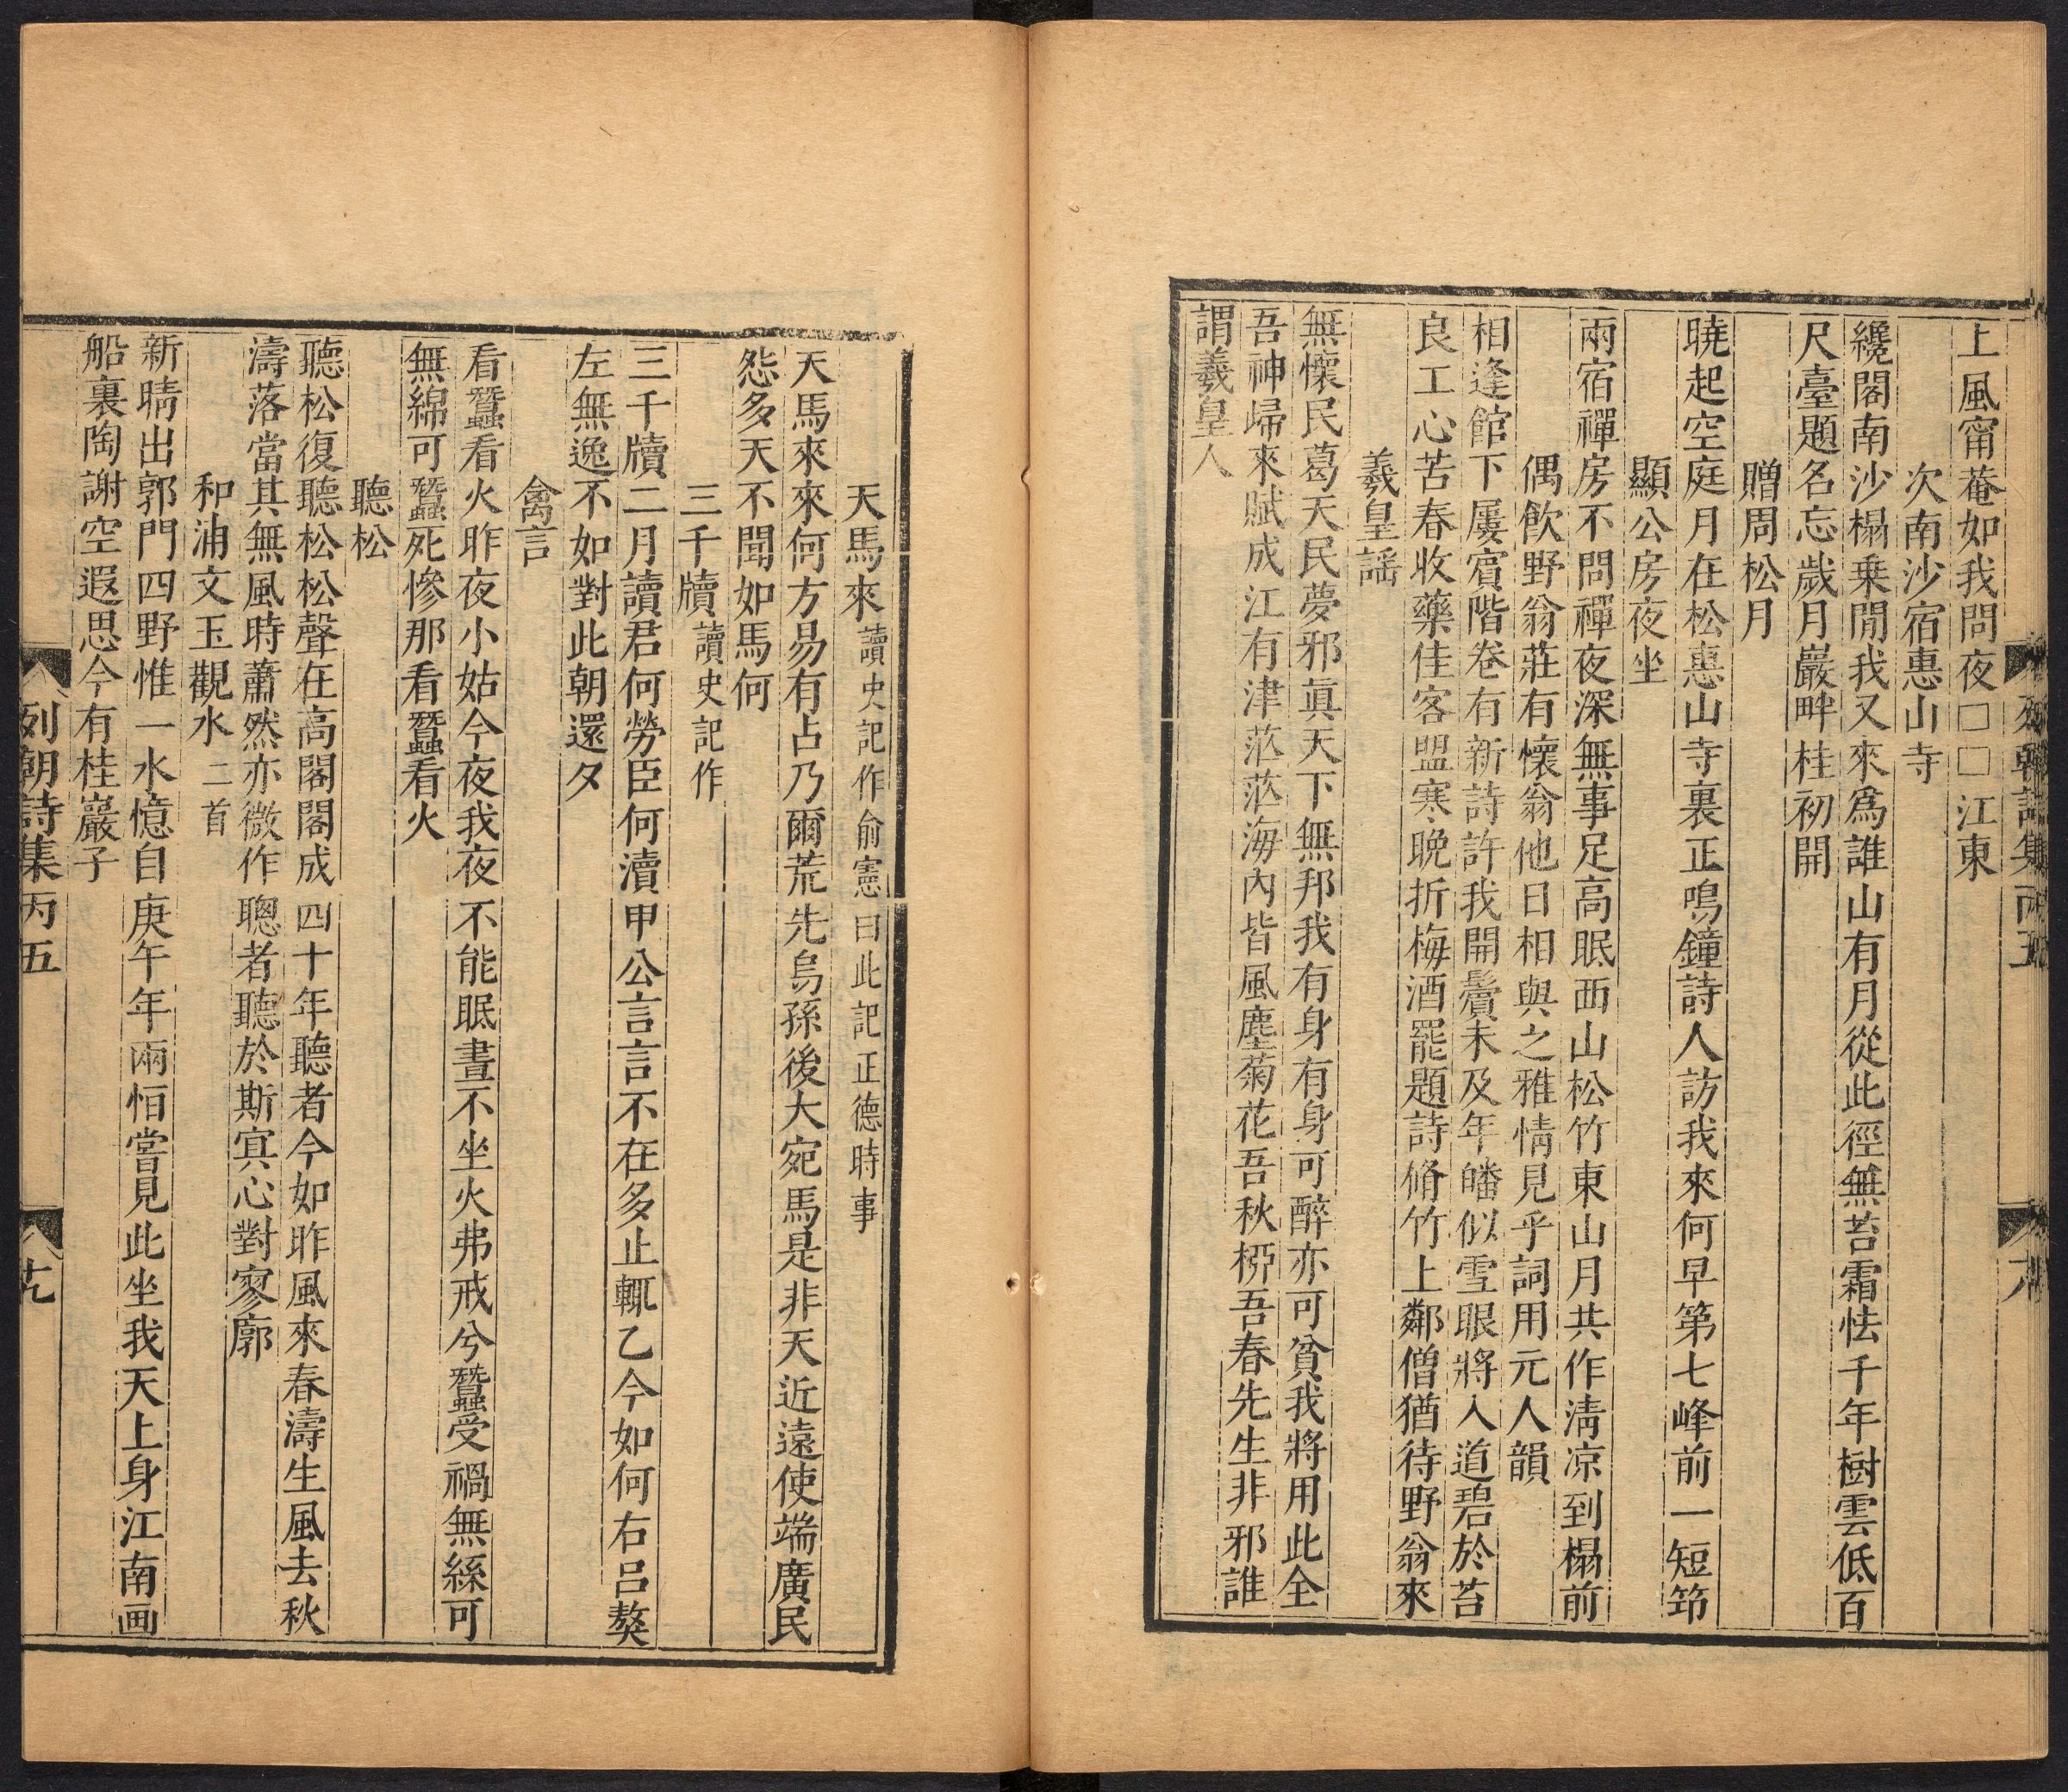 上風甯菴如我問夜□□江東
次南沙宿惠山寺
纔閣南沙榻乗閒我又來爲誰山有月從此徑無苔霜怯千年樹雲低百
尺臺題名忘歲月巖畔桂初開
贈周松月
曉起空庭月在松惠山寺裏正鳴鐘詩人訪我來何早第七峰前一短筇
顯公房夜坐
兩宿禪房不問禪夜深無事足高眠西山松竹東山月共作淸凉到榻前
偶飲野翁莊有懷翁他日相與之雅情見乎詞用元人韻
相逢館下屢賓階卷有新詩許我開鬢未及年皤似雪眼將入道碧於苔
良工心苦春收藥佳客盟寒晚折梅酒罷題詩脩竹上鄰僧猶待野翁來
羲皇謡
無懷民葛天民夢邪眞天下無邦我有身有身可醉亦可貧我將用此全
吾神歸來賦成江有津茫茫海內皆風塵菊花吾秋桞吾春先生非邪誰
謂羲皇人
列朝詩集丙五
天馬來讀史記作俞憲曰此記正德時事
天馬來來何方易有占乃爾荒先烏孫後大宛馬是非天近遠使端廣民
怨多天不聞如馬何
三千牘讀史記作
三千牘二月讀君何勞臣何瀆甲公言言不在多止輒乙今如何右呂獒
左無逸不如對此朝還夕
禽言
看蠶看火昨夜小姑今夜我夜不能眠晝不坐火弗戒兮蠶受禍無絲可
無綿可蠶死慘那看蠶看火
聽松
聽松復聽松松聲在高閣閣成四十年聽者今如昨風來春濤生風去秋
濤落當其無風時蕭然亦微作聰者聽於斯㝠心對寥廓
和浦文玉觀水二首
新晴出郭門四野惟一水憶自庚午年兩怕嘗見此坐我天上身江南画
船裏陶謝空遐思今有桂巖子
列朝詩集丙五